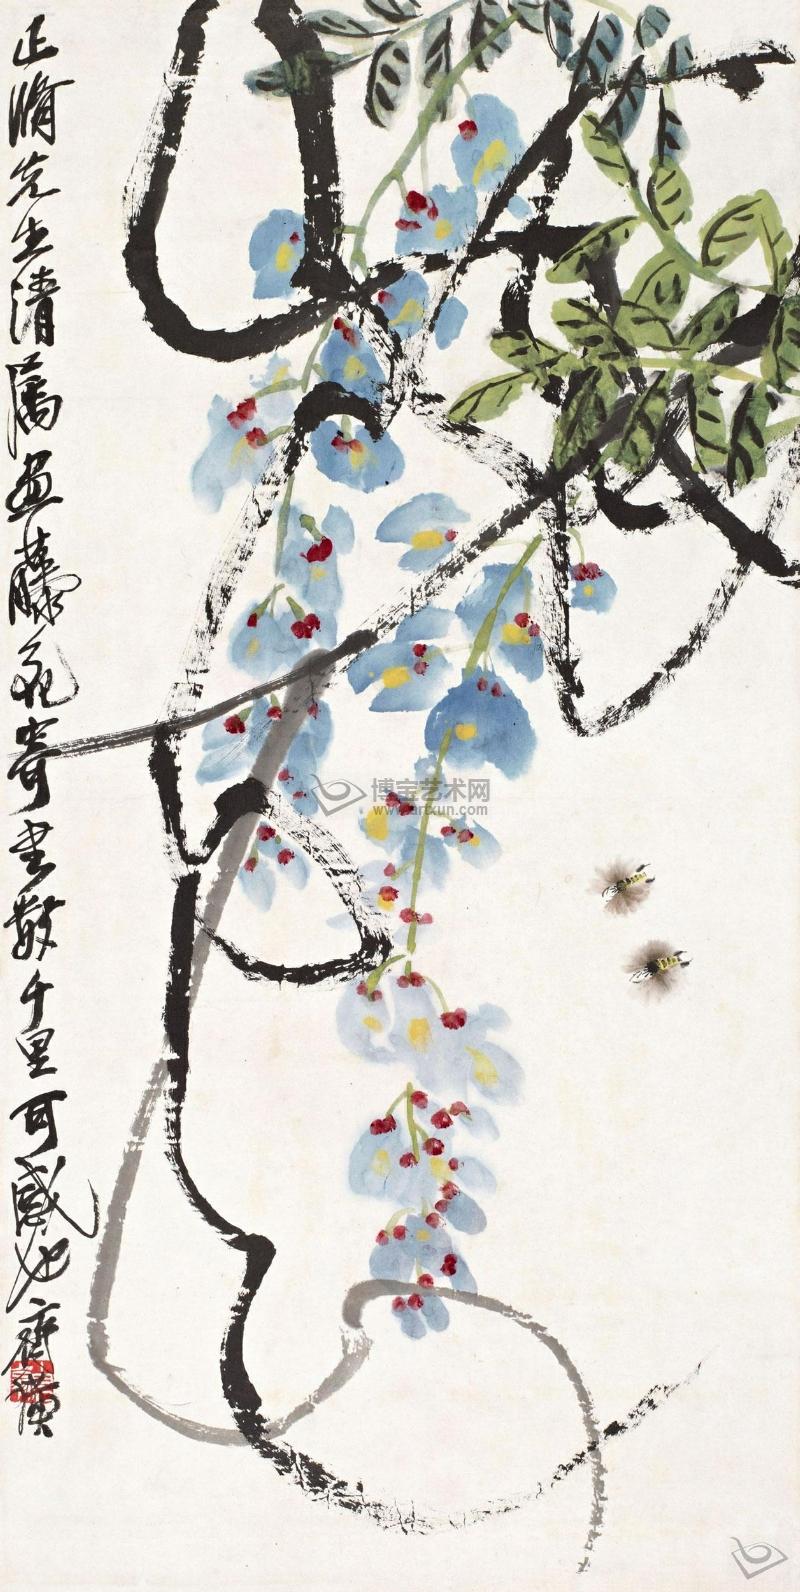 正脩先生清属画藤花寄书数千里可感也齊璜
博宝艺术网
www.artxun.com